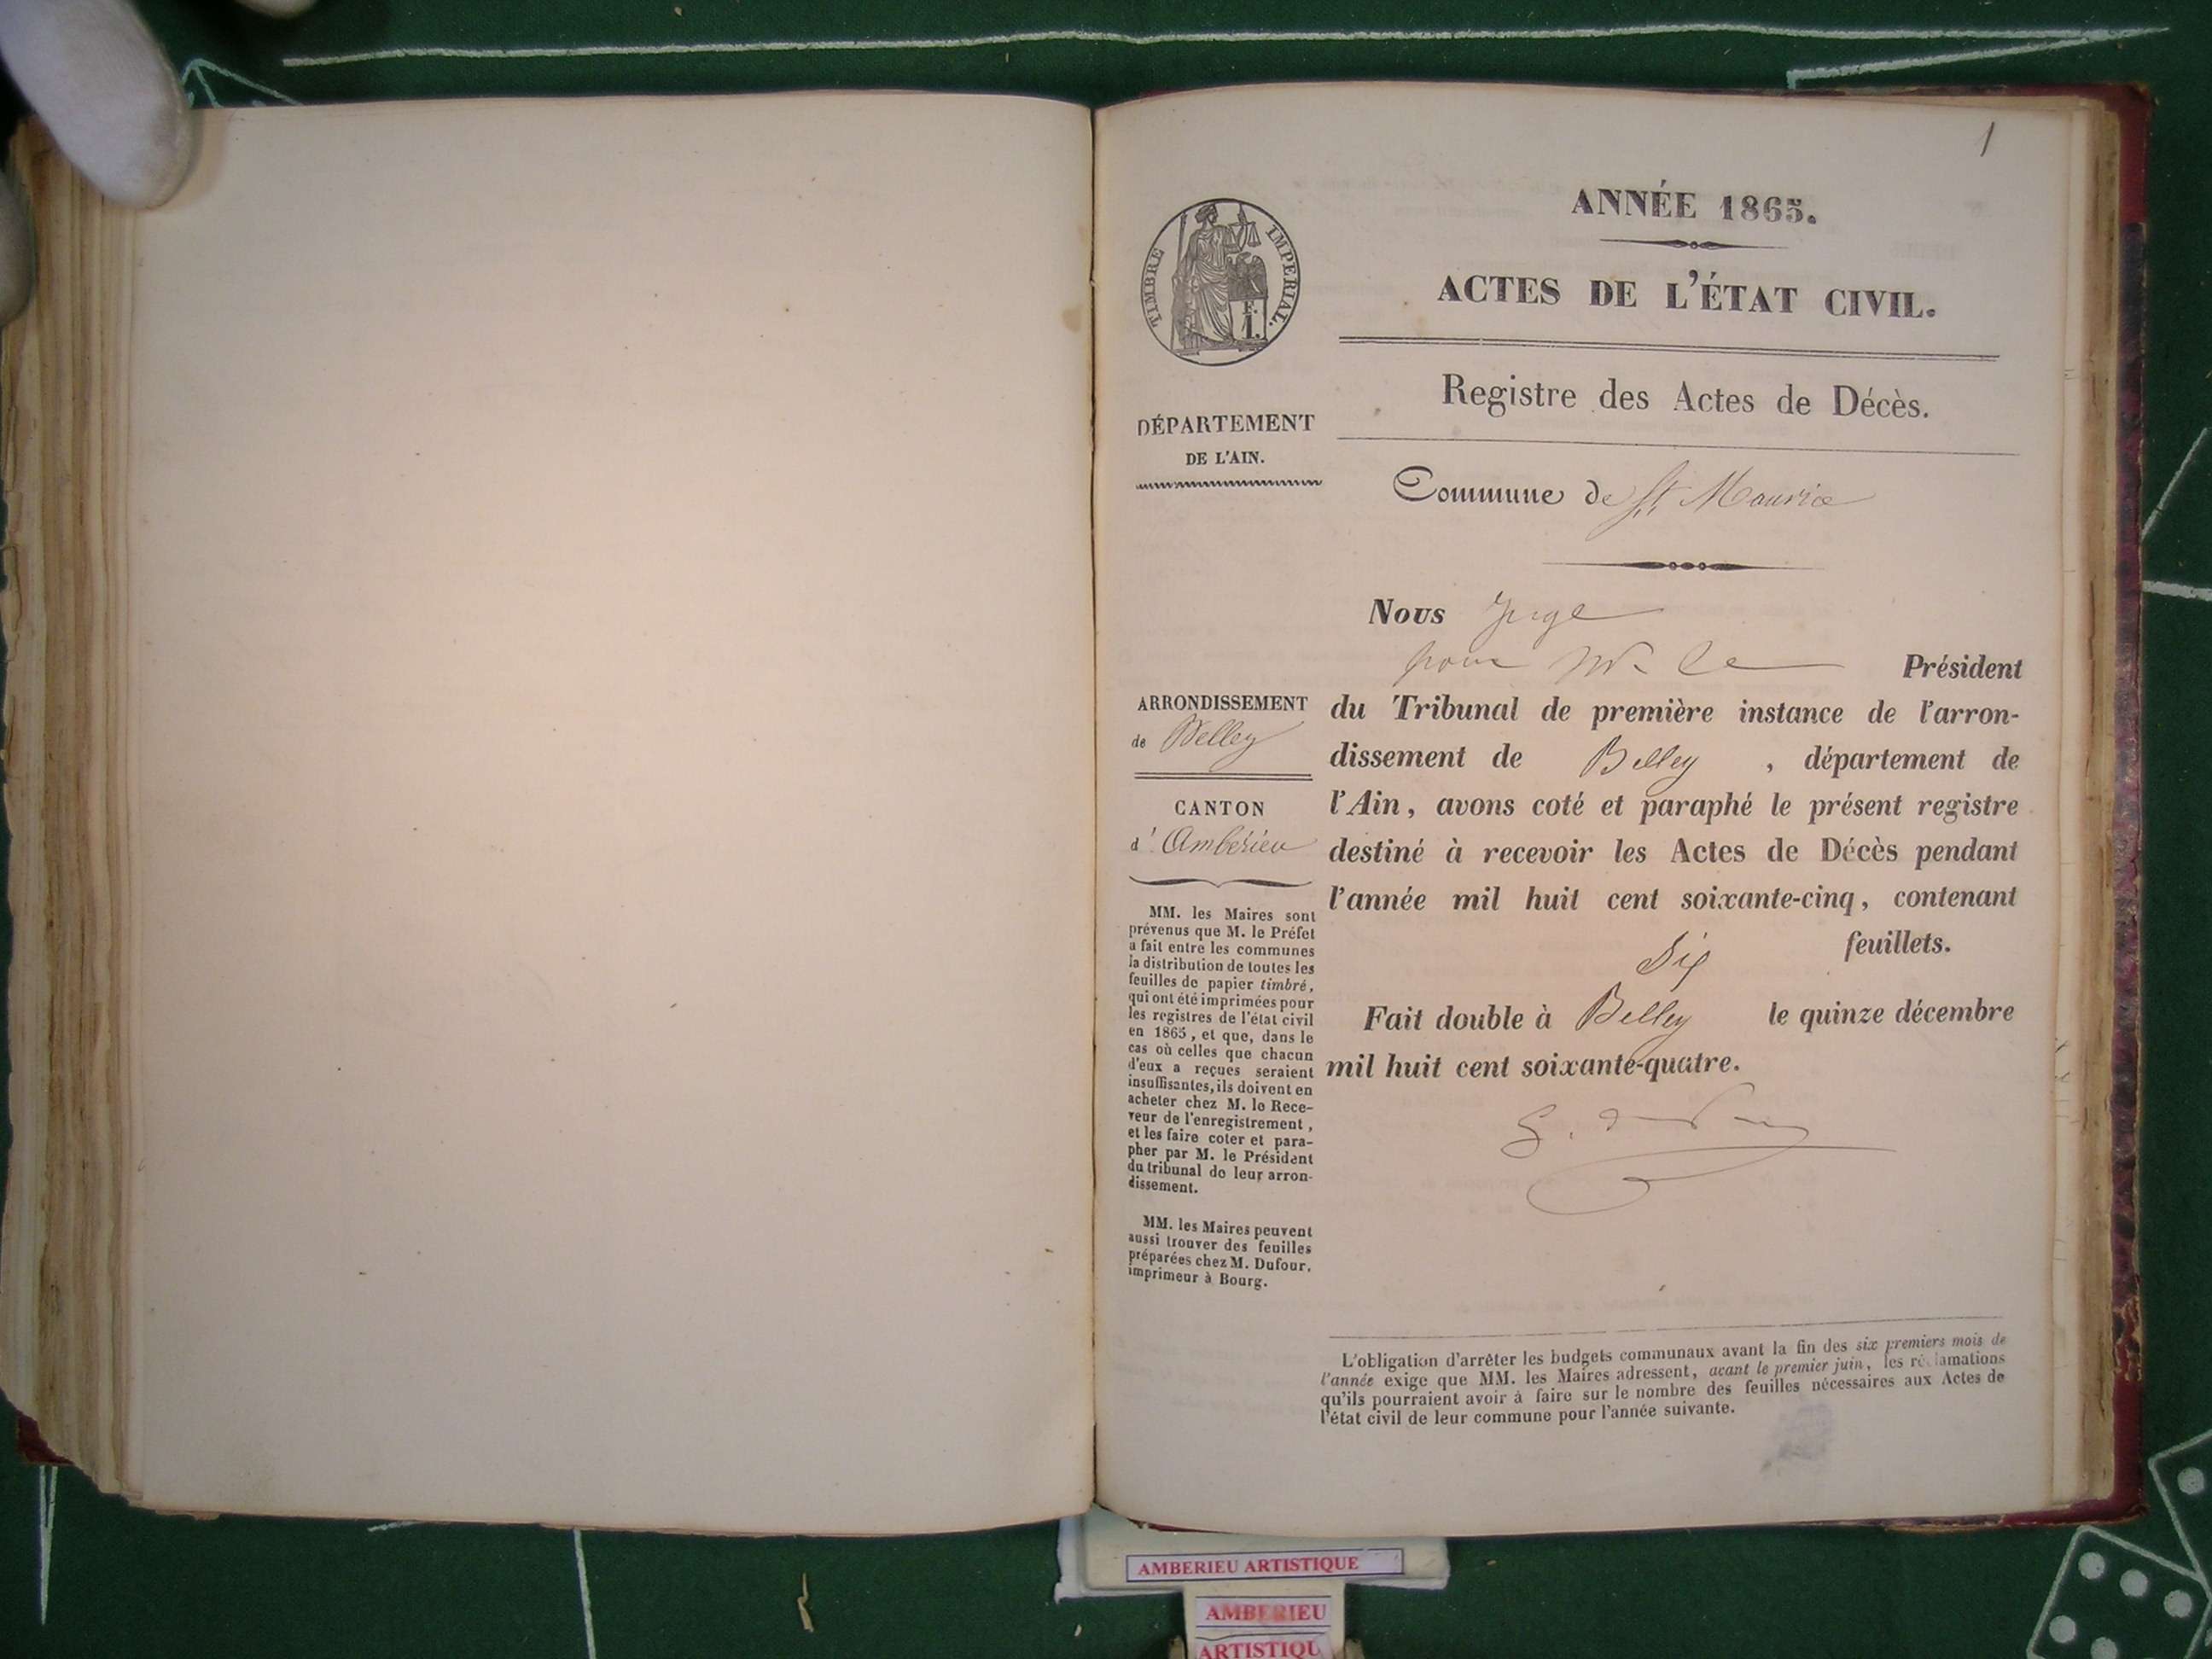 1
TIMBRE IMPERIAL.
E.
ANNÉE 1865.
ACTES DE L'ÉTAT CIVIL.
Registre des Actes de Décès.
DÉPARTEMENT
DE L'AIN.
Commune de St Maurice
Nous Juge
pour Mr le Président
ARRONDISSEMENT
de Belley
du Tribunal de première instance de l'arron-
dissement de Belley , département de
l'Ain, avons coté et paraphé le présent registre
destiné à recevoir les Actes de Décès pendant
l'année mil huit cent soixante-cinq, contenant
feuillets.
Fait double à Belley le quinze décembre
mil huit cent soixante-quatre.
CANTON
d' Ambérieu
MM. les Maires sont
prévenus que M. le Préfet
a fait entre les communes
la distribution de toutes les
feuilles de papier timbré,
qui ont été imprimées pour
les registres de l'état civil
en 1865, et que, dans le
cas où celles que chacun
d'eux a reçues seraient
insuffisantes, ils doivent en
acheter chez M. le Rece-
veur de l'enregistrement,
et les faire coter et para-
pher par M. le Président
du tribunal de leur arron-
dissement.
MM. les Maires peuvent
aussi trouver des feuilles
préparées chez M. Dufour,
imprimeur à Bourg.
L'obligation d'arrêter les budgets communaux avant la fin des six premiers mois de
l'année exige que MM. les Maires adressent, avant le premier juin, les réclamations
qu'ils pourraient avoir à faire sur le nombre des feuilles nécessaires aux Actes de
l'état civil de leur commune pour l'année suivante.
AMBERIEU ARTISTIQUE
AMBERIEU
ARTISTIQU